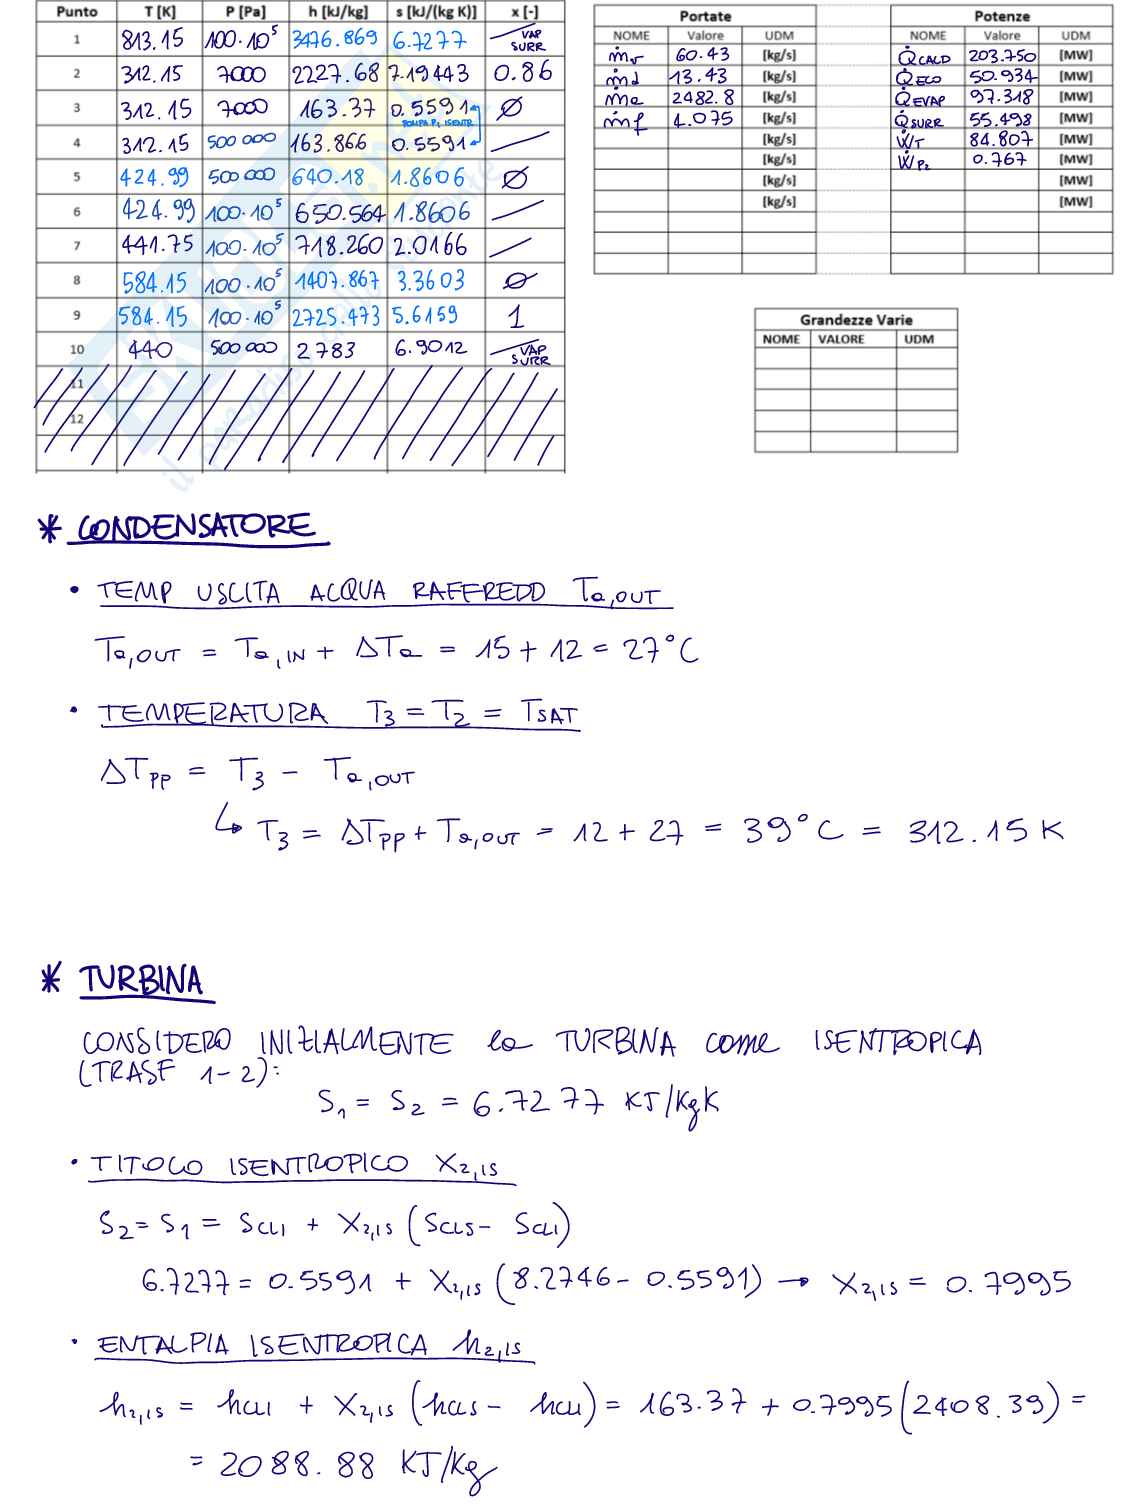 Punto T [K] P [Pa] h [kJ/kg] s [kJ/(kg K)] x [-]
1 813.15 100·10⁵ 3476.869 6.7277 VAP SURR
2 312.15 7000 2227.68 7.19443 0.86
3 312.15 7000 163.37 0.5591 Ø
POMPA P1 ISENTR
4 312.15 500 000 163.866 0.5591 —
5 424.99 500 000 640.18 1.8606 Ø
6 424.99 100·10⁵ 650.564 1.8606 —
7 441.75 100·10⁵ 718.260 2.0166 —
8 584.15 100·10⁵ 1407.867 3.3603 Ø
9 584.15 100·10⁵ 2725.473 5.6159 1
10 440 500 000 2783 6.9012 VAP SURR
11
12
Portate
NOME Valore UDM
ṁv 60.43 [kg/s]
ṁd 13.43 [kg/s]
ṁa 2482.8 [kg/s]
ṁf 4.075 [kg/s]
[kg/s]
[kg/s]
[kg/s]
[kg/s]
Potenze
NOME Valore UDM
Q̇CALD 203.750 [MW]
Q̇ECO 50.934 [MW]
Q̇EVAP 97.318 [MW]
Q̇SURR 55.498 [MW]
ẆT 84.807 [MW]
ẆP2 0.767 [MW]
[MW]
[MW]
Grandezze Varie
NOME VALORE UDM
* CONDENSATORE
• TEMP USCITA ACQUA RAFFREDD Ta,OUT
Ta,OUT = Ta,IN + ΔTa = 15 + 12 = 27°C
• TEMPERATURA T3 = T2 = TSAT
ΔTPP = T3 - Ta,OUT
↳ T3 = ΔTPP + Ta,OUT = 12 + 27 = 39°C = 312.15 K
* TURBINA
CONSIDERO INIZIALMENTE la TURBINA come ISENTROPICA
(TRASF 1-2):
S1 = S2 = 6.7277 KJ/KgK
• TITOLO ISENTROPICO X2,IS
S2 = S1 = SCLI + X2,IS (SCLS - SCLI)
6.7277 = 0.5591 + X2,IS (8.2746 - 0.5591) → X2,IS = 0.7995
• ENTALPIA ISENTROPICA h2,IS
h2,IS = hCLI + X2,IS (hCLS - hCLI) = 163.37 + 0.7995 (2408.39) =
= 2088.88 KJ/Kg